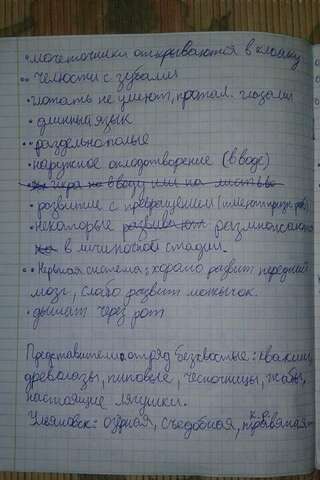 • мочеточники открываются в клоаку
•• челюсти с зубами
• глотать не умеют, протал. глазами
• длинный язык
•• раздельнополые
• наружное оплодотворение (в воде)
• икра не в воду или на листьях
• развитие с превращением
• некоторые развивают размножаются
в личиночной стадии.
•• Нервная система: хорошо развит передний
мозг, слабо развит мозжечок.
• дышат через рот
Представители: отряд безхвостые: квакши,
древолазы, пиповые, чесночницы, жабы,
настоящие лягушки.
Ульяновск: озёрная, съедобная, травяная